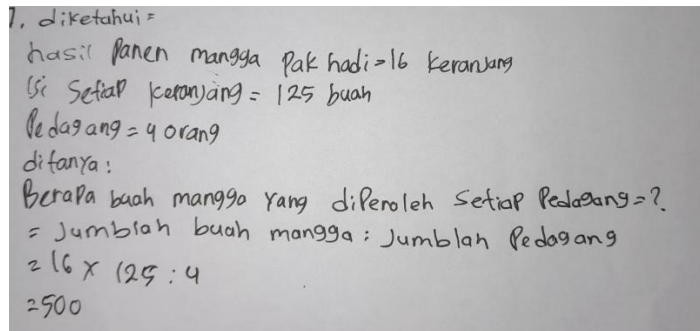 1. diketahui =
hasil Panen mangga Pak hadi = 16 Keranjang
Isi Setiap keranjang = 125 buah
Pedagang = 4 orang
ditanya :
Berapa buah mangga yang diPeroleh Setiap Pedagang = ?.
= Jumblah buah mangga : Jumblah Pedagang
= 16 x 125 : 4
= 500